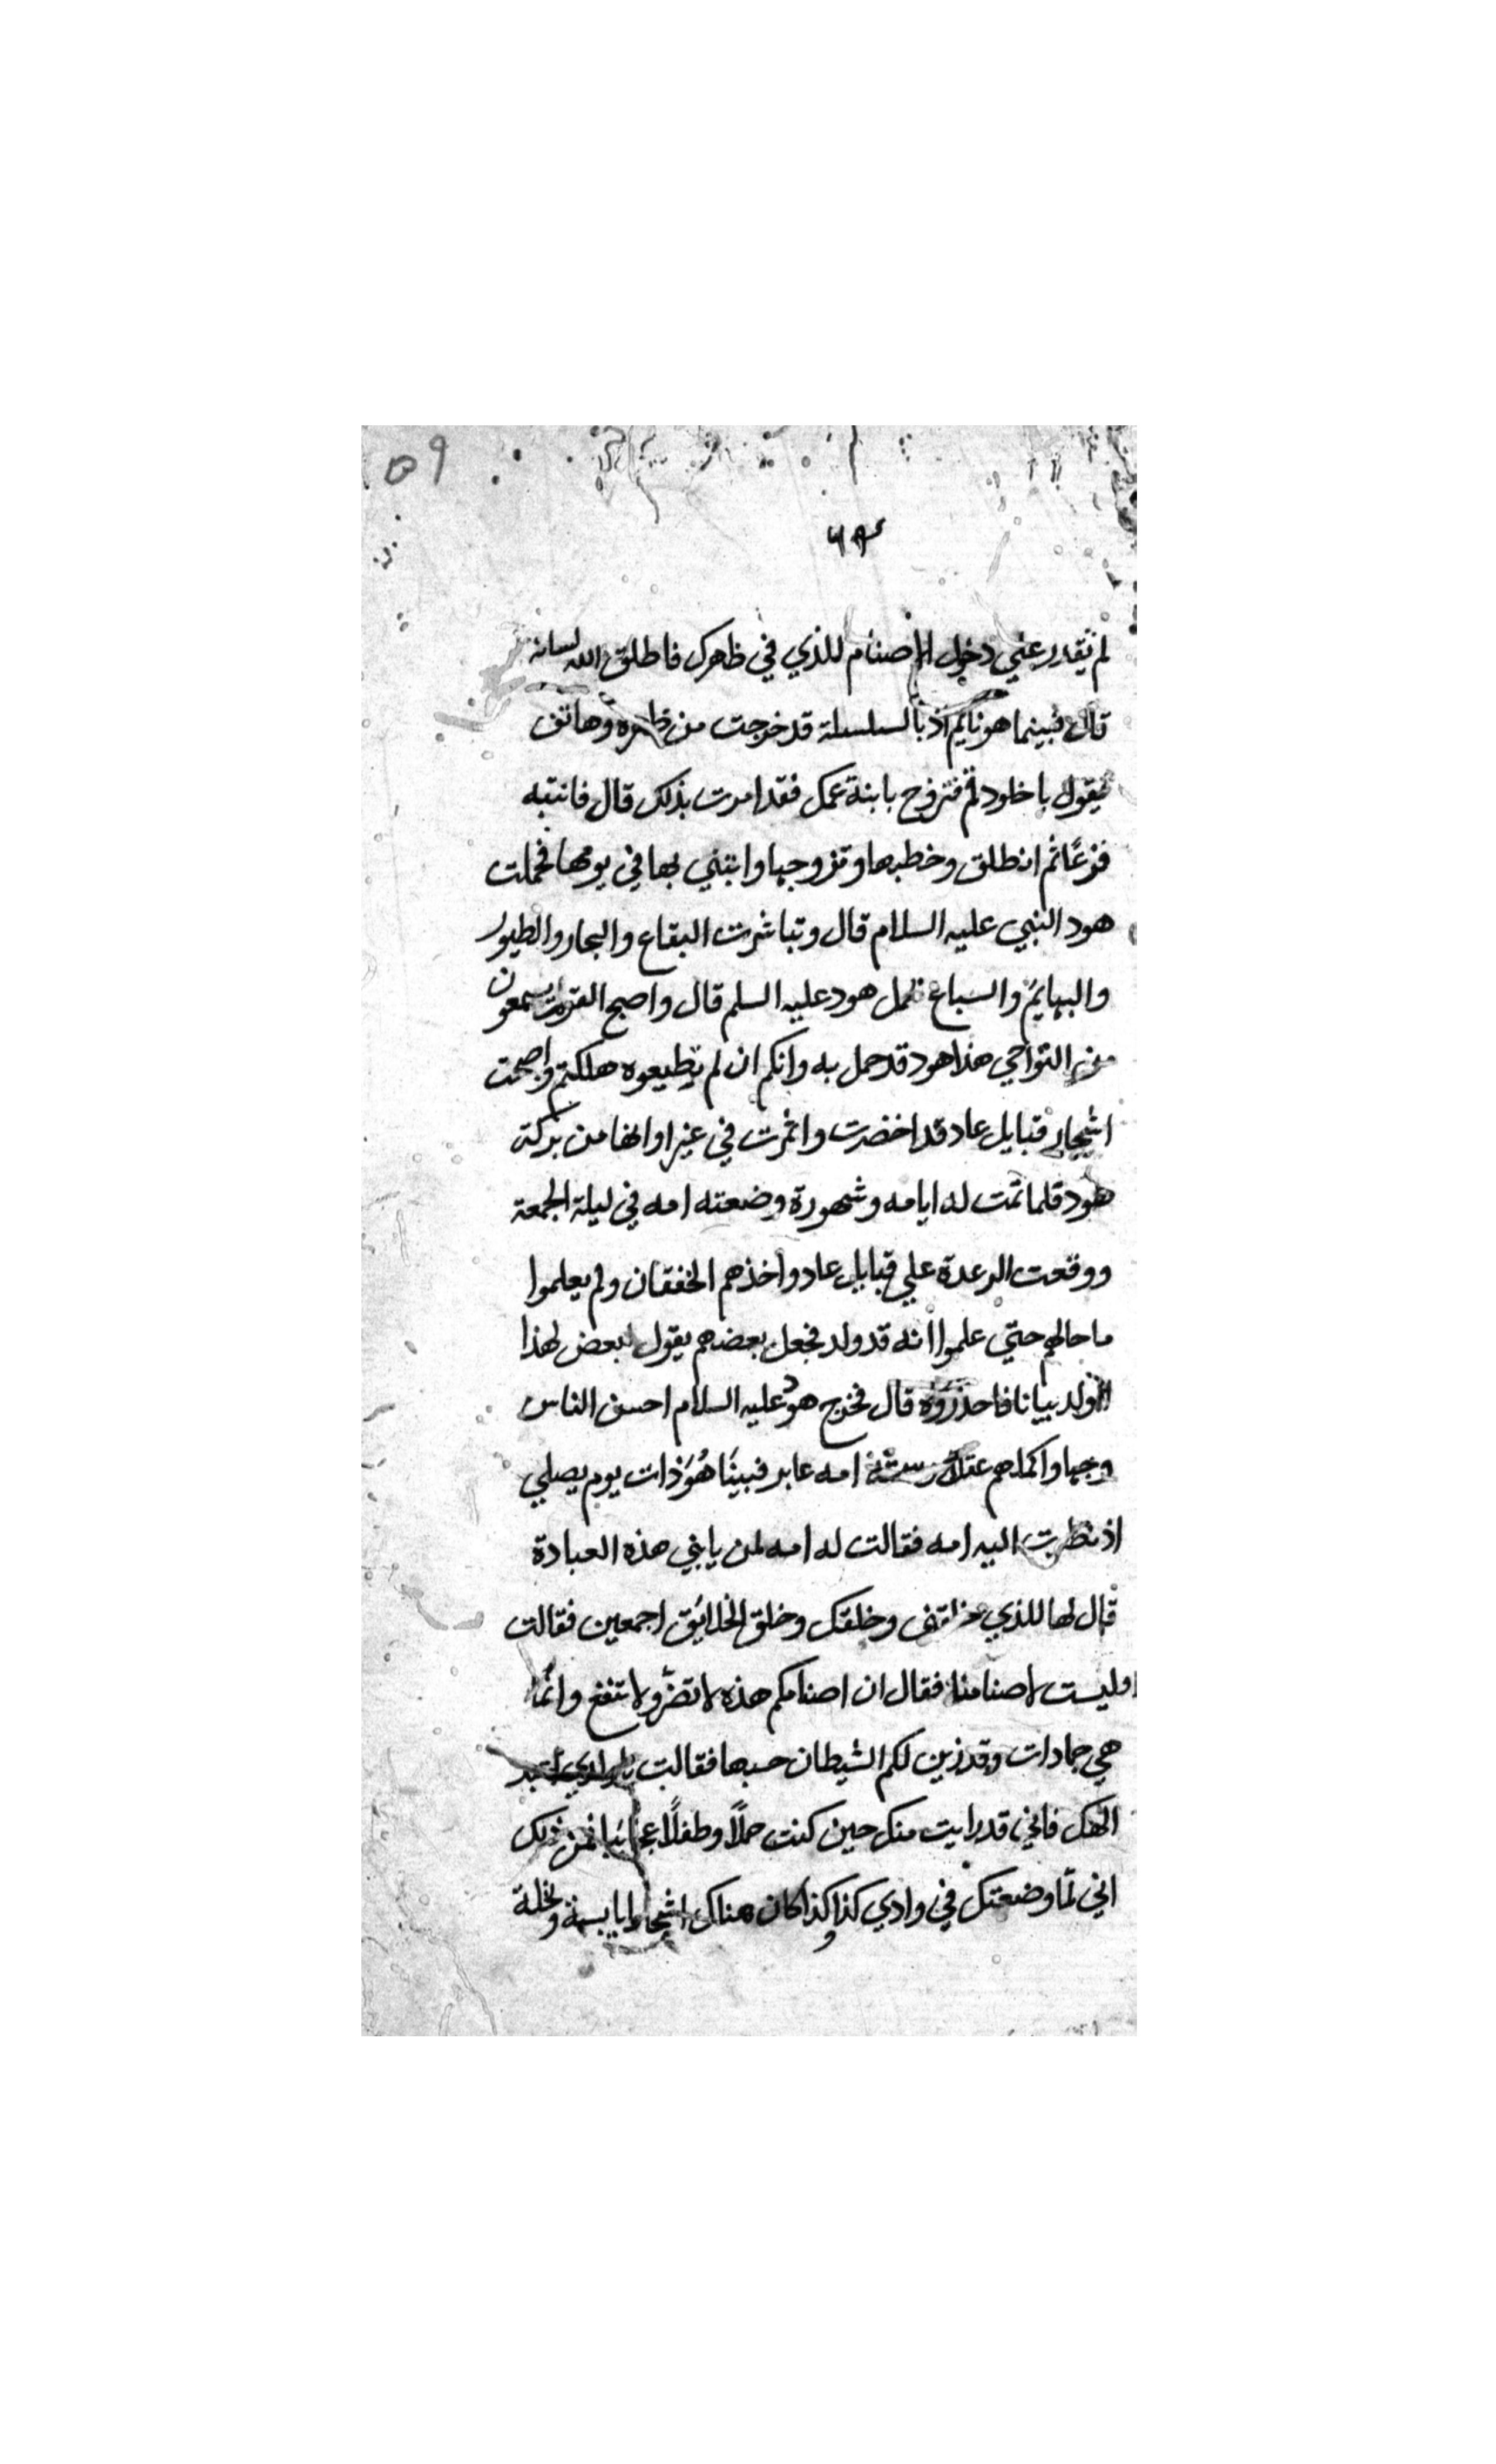 ٥٩
لم يقدر علي دخول الاصنام للذي في ظهرك فاطلق الله لسانه
قال فبينما هو نايم اذ بالسلسلة قد خرجت من ظهره وهاتف
يقول يا خلود قم فتزوج بابنة عمك فقد امرت بذلك قال فانتبه
فزعًا ثم انطلق وخطبها وتزوجها وابتني بها في يومها فحملت
هود النبي عليه السلام قال وتباشرت البقاع والبحار والطيور
والبهايم والسباع لحمل هود عليه السلم قال واصبح القوم يسمعون
من النواحي هذا هود قد حمل به وانكم ان لم تطيعوه هلكتم واصبحت
اشجار قبايل عاد قد اخضرت واثمرت في غير اوانها من بركة
هود فلما تمت له ايامه وشهوره وضعته امه في ليلة الجمعة
ووقعت الرعدة علي قبايل عاد واخذهم الخفقان ولم يعلموا
ما حالهم حتي علموا انه قد ولد فجعل بعضهم يقول لبعض لهذا
الولد بيانا فاحذروه قال فخرج هود عليه السلام احسن الناس
وجها واكملهم عقلا امه عابر فبينا هُوَ ذات يوم يصلي
اذ نظرت اليه امه فقالت له امه لمن يا بني هذه العبادة
قال لها للذي خلقني وخلقك وخلق الخلائق اجمعين فقالت
اوليست لاصنامنا فقال ان اصنامكم هذه لا تضر ولا تنفع وانما
هي جمادات وقد زين لكم الشيطان حبها فقالت يا ولدي اعبد
الهك فاني قد رايت منك حين كنت حملًا وطفلًا عجائبا فمن ذلك
اني لما وضعتك في وادي كذا وكذا كان هناك اشجارا يابسة ونخلة